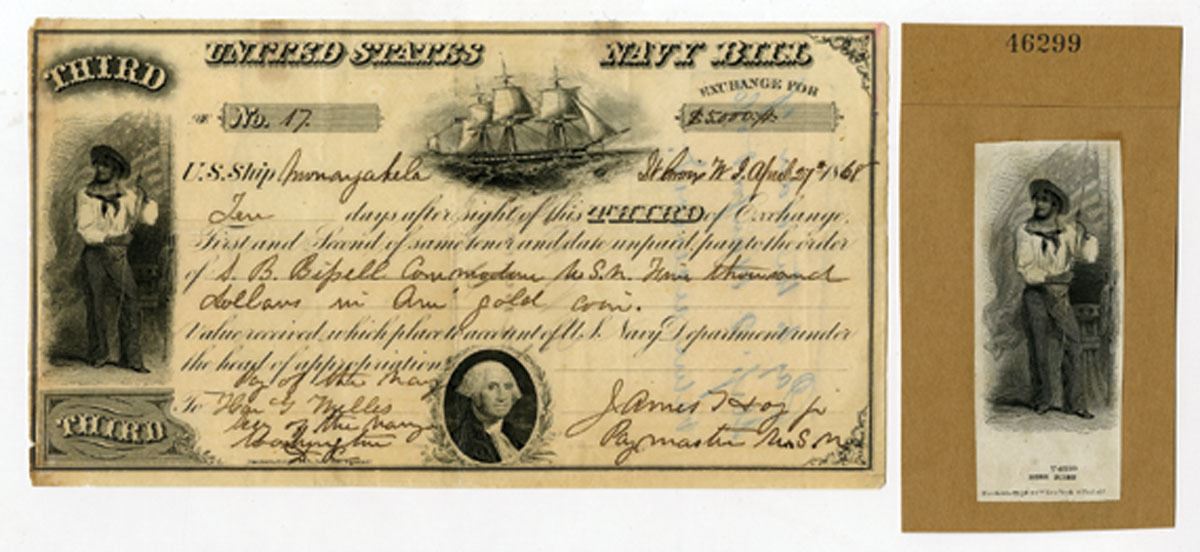 THIRD
UNITED STATES NAVY BILL
EXCHANGE FOR
No. 17.
$5000
U.S. Ship Monongahela St Croix W I, April 27th 1868
Ten days after sight of this THIRD of Exchange,
First and Second of same tenor and date unpaid, pay to the order
of S. B. Bissell Commodore U.S.N. Five thousand
dollars in Am gold coin.
Value received, which place to account of U.S. Navy Department under
the head of appropriation
Pay of the Navy
To Hon G Welles
Sec of the Navy
Washington
THIRD
James Hoy Jr
Paymaster U.S.N.
46299